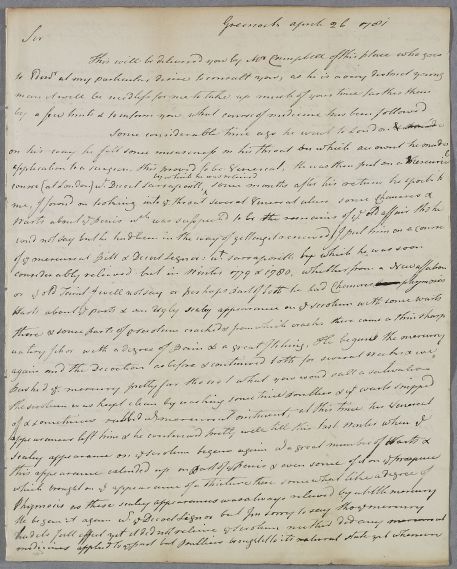 Greenock April 26 1781
Sir
This will be delivered you by Mr Campbell of this place who goes
to Edinr at my particular desire to consult you, as he is a very distinct young
man it will be needless for me to take up much of your time farther than
by a few hints to inform you what course of medicine has been followed
Some considerable time ago he went to London &
on his way he felt some uneasiness in his throat on which account he made
application to a surgeon, this proved to be Venereal, he was then put on a Mercurial
course (at London) wt Decoct sarsaparill by which he was relieved some months after his return he spoke to
me, I found on looking into ye throat several Venereal ulcers some Chancres &
warts about ye Penis wch was suspected to be the remains of ye old affair tho he
coud not say but he had been in the way of getting it renewed I put him on a course
of ye mercurial Pill & Decoct Lignor: wt sarsaparill by which he was soon
considerably relieved but in Winter 1779 & 1780, whether from a New affair
or ye old Taint I will not say or perhaps part of both he had Chancres phymosis
Warts about ye parts & an Ugly scaly appearance on ye scrotum with some warts
there & some parts of ye scrotum cracked from which cracks there came a thin sharp
watery Ichor with a degree of Pain & a great Itching. He begun the mercury
again and the decoction as before & continued both for several weeks & we
pushed ye mercury pretty far tho not what you woud call a salivation
The scrotum was kept clean by washing sometimes Poultices & ye warts snipped
off & sometimes rubbed wt mercurial ointment, at this time his Venereal
appearances left him & he continued pretty well till this last Winter when ye
scaly appearance on ye scrotum begun again wt a great number of Warts &
this appearance extended up on part of ye Penis & even some of it on ye prepuce
which brought on ye appearance of a thickness there somewhat like a degree of
Phymosis as these scaly appearances was always relieved by a little mercury
He began it again wt ye Decoct Lignor but I'm sorry to say tho ye mercury
had its full effect yet it did not relieve ye scrotum neither did any
medicines applied to ye part but poultices brought it to its natural state yet whenever